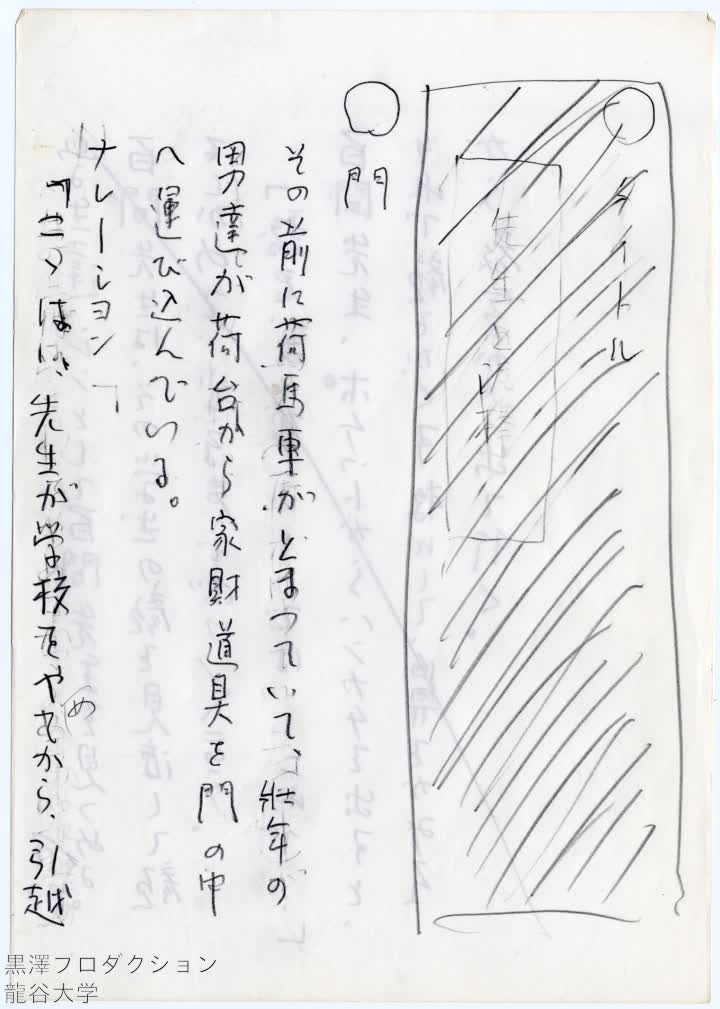 ○タイトル
○門
その前に荷馬車がとまつていて、壮年の
男達が荷台から家財道具を門の中
へ運び込んでいる。
ナレーション
先生が学校をやめから、引越
黒澤プロダクション
龍谷大学